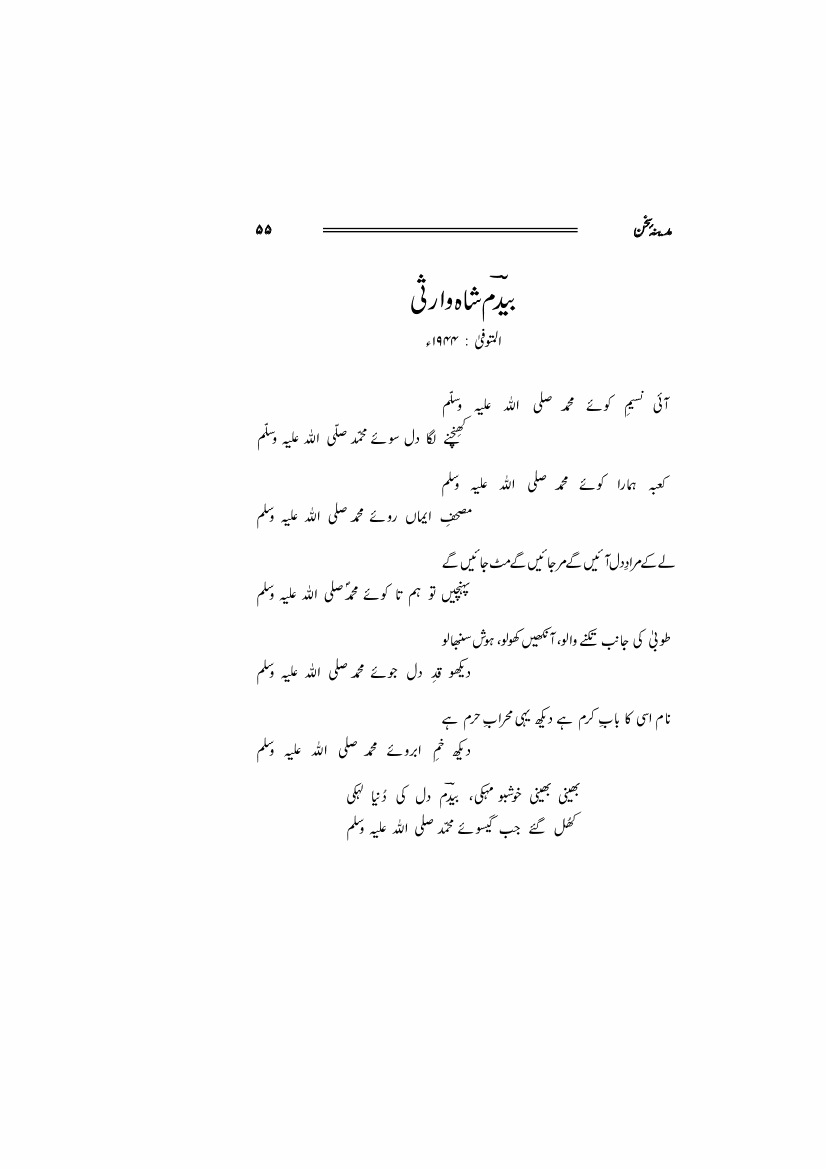 مدینۂ سخن ۵۵
بیدمؔ شاہ وارثی
المتوفیٰ : ۱۹۴۴ء
آئی نسیمِ کوئے محمد صلی اللہ علیہ وسلّم
کھنچنے لگا دل سوئے محمّد صلّی اللہ علیہ وسلّم
کعبہ ہمارا کوئے محمد صلی اللہ علیہ وسلم
مصحفِ ایماں روئے محمد صلی اللہ علیہ وسلم
لے کے مرادِ دل آئیں گے مر جائیں گے مٹ جائیں گے
پہنچیں تو ہم تا کوئے محمدؐ صلی اللہ علیہ وسلم
طوبیٰ کی جانب تکنے والو، آنکھیں کھولو، ہوش سنبھالو
دیکھو قدِ دل جوئے محمد صلی اللہ علیہ وسلم
نام اسی کا بابِ کرم ہے دیکھ یہی محرابِ حرم ہے
دیکھ خمِ ابروئے محمد صلی اللہ علیہ وسلم
بھینی بھینی خوشبو مہکی، بیدمؔ دل کی دُنیا لہکی
کھُل گئے جب گیسوئے محمّد صلی اللہ علیہ وسلم